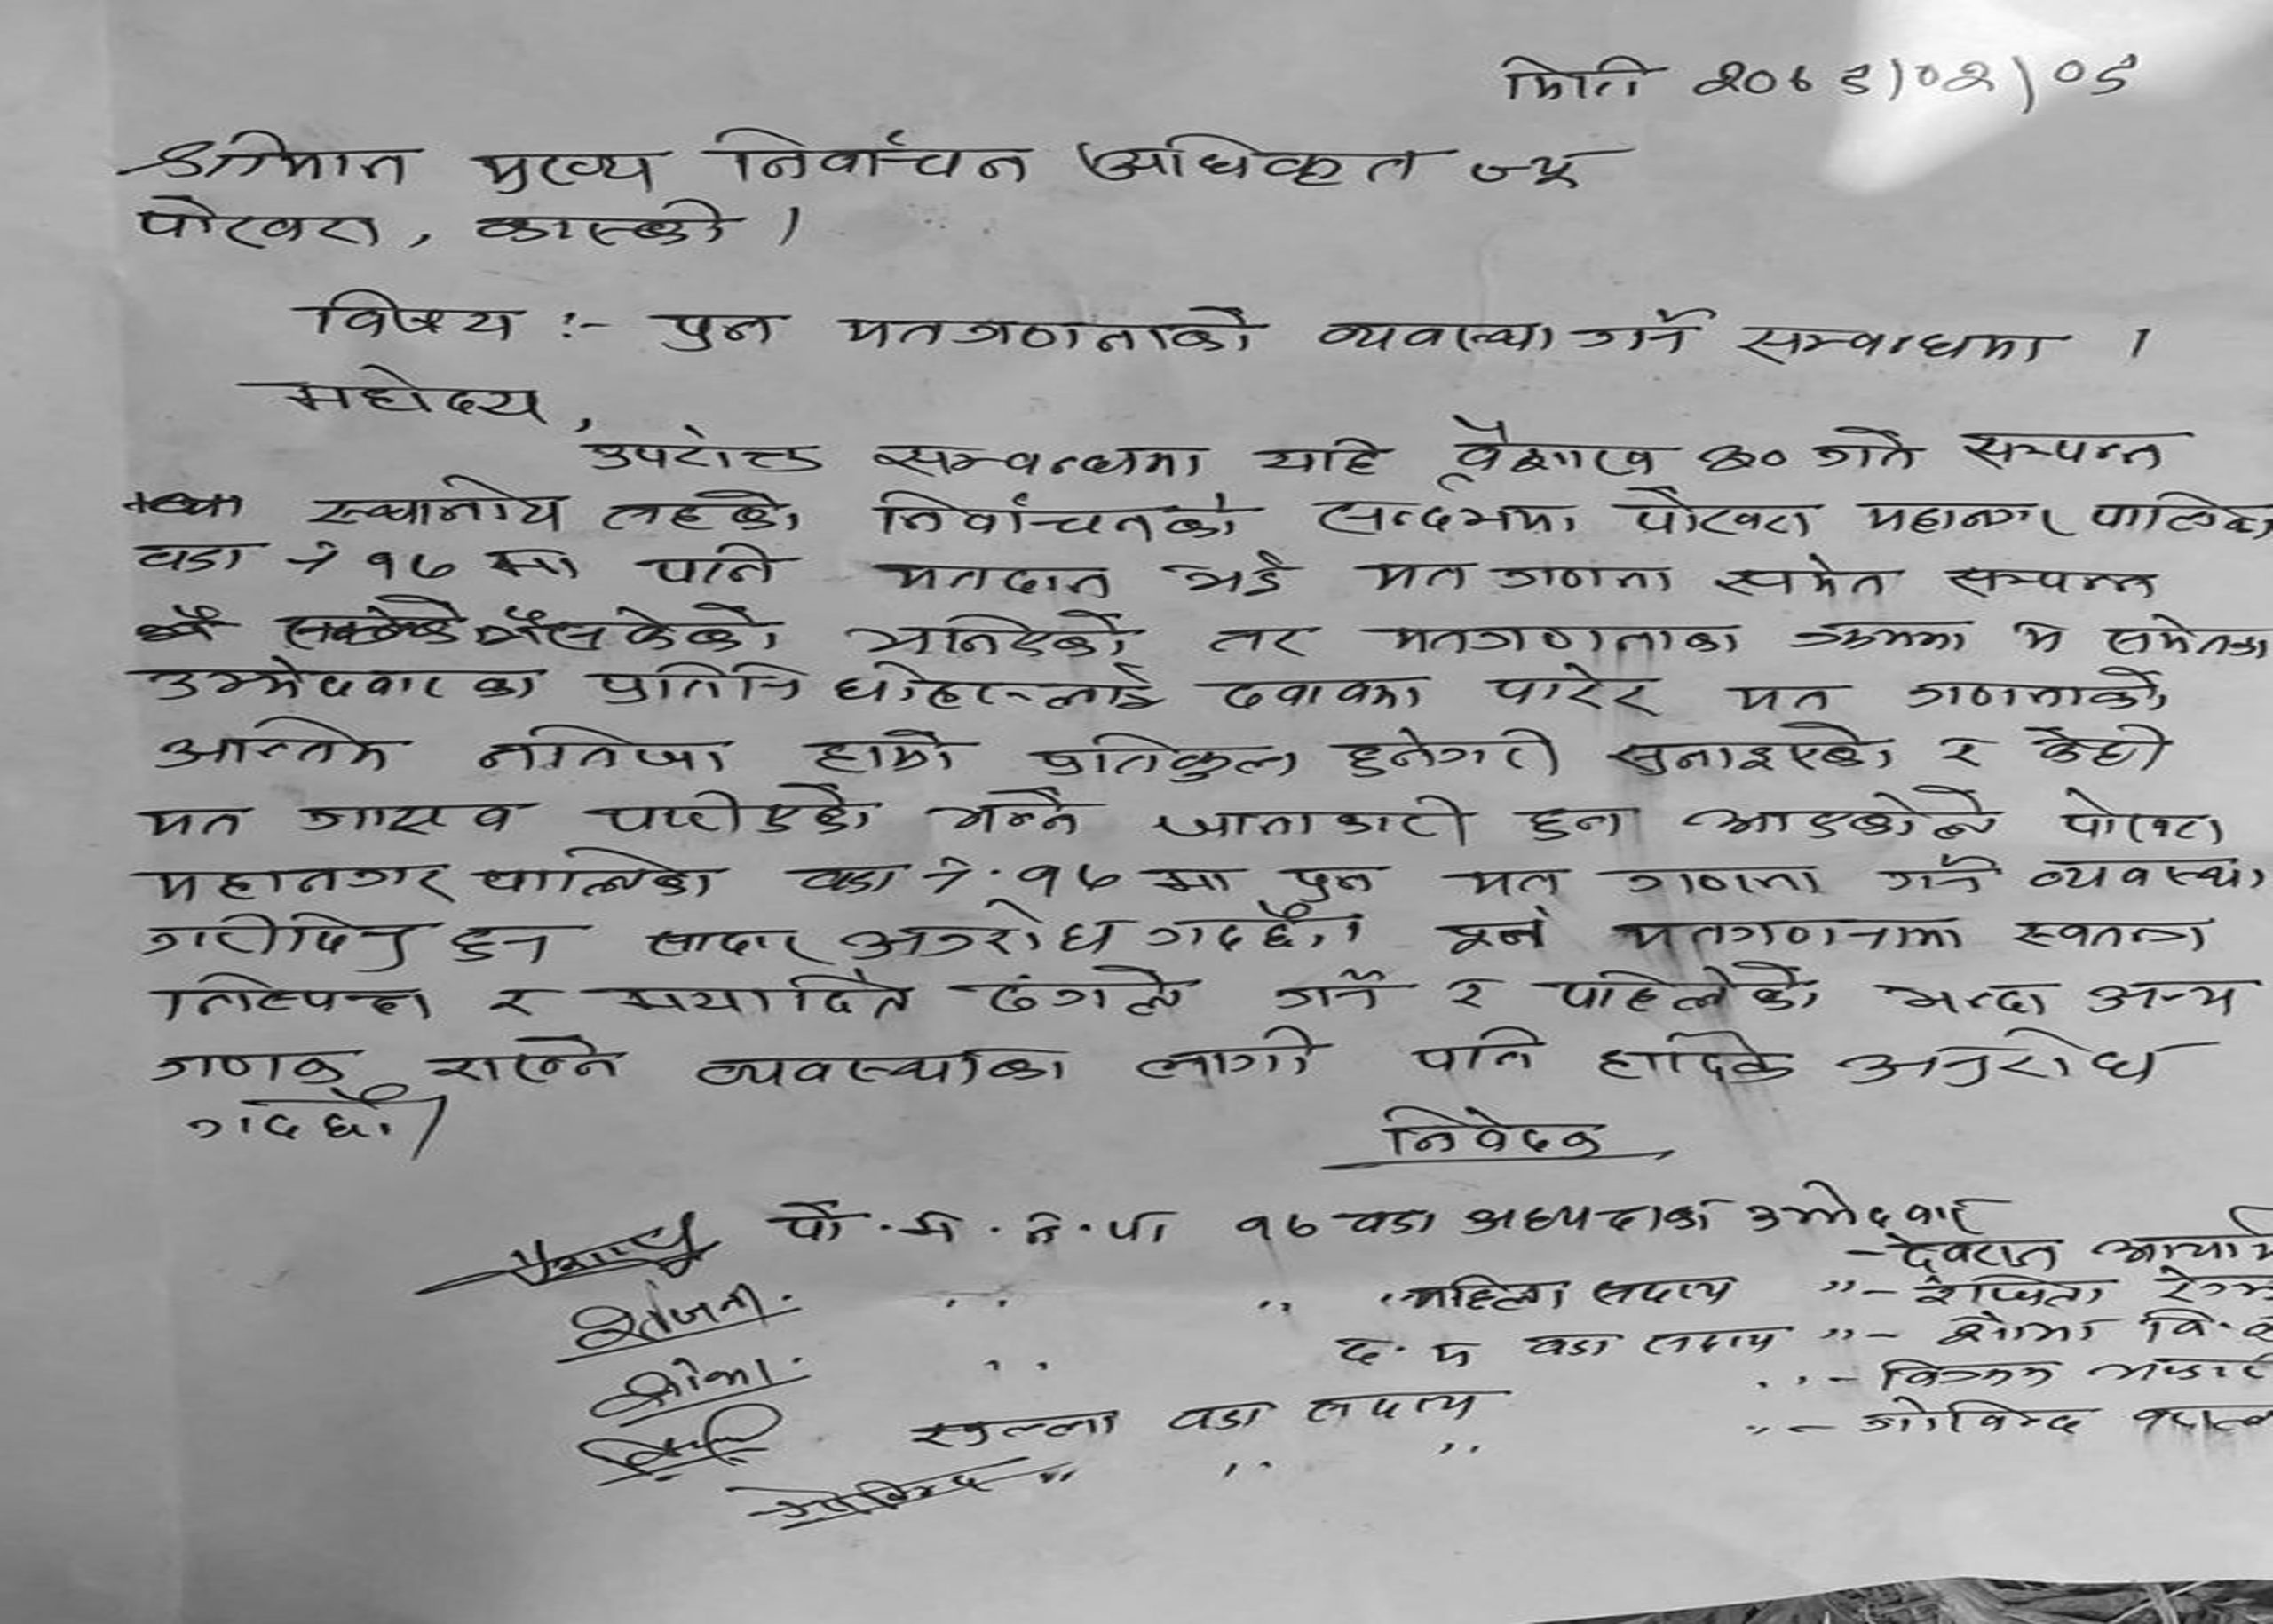 मिति २०७९/०२/०९
श्रीमान मुख्य निर्वाचन अधिकृत ज्यू
पोखरा, कास्की ।
विषय :- पुन मतगणनाको व्यवस्था गर्ने सम्बन्धमा ।
महोदय,
उपरोक्त सम्बन्धमा यहि वैशाख ३० गते सम्पन्न
स्थानीय तहको निर्वाचनको सन्दर्भमा पोखरा महानगर पालिका
वडा नं १७ मा पनि मतदान भई मत गणना समेत सम्पन्न
भैसकेको भनिएको तर मतगणनाका क्रममा म समेतका
उम्मेदवारका प्रतिनिधीहरुलाई दवावमा पारेर मत गणनाको
अन्तिम नतिजा हाम्रो प्रतिकुल हुनेगरी सुनाइएको र केही
मत गायव पारीएको भन्ने जानाकारी हुन आएकोले पोखरा
महानगर पालिका वडा नं. १७ मा पुन मत गणना गर्ने व्यवस्था
गरीदिनु हुन सादर अनुरोध गर्दछौं। पुन मतगणनामा स्वतन्त्र
निष्पक्ष र मर्यादित ढंगले गर्ने र पहिलेको भन्दा अन्य
गणक राख्ने व्यवस्थाका लागी पनि हार्दिक अनुरोध
गर्दछौं।
निवेदक
पो.म.न.पा १७ वडा अध्यक्षका उम्मेदवार
- देवराज
रंजिता. ,, ,, महिला सदस्य ,,- रंजिता
शोभा. ,, द. म वडा सदस्य ,,- शोभा वि.क
,,- विक्रम
खुल्ला वडा सदस्य ,,- गोविन्द
गोविन्द ,, ,, ,,